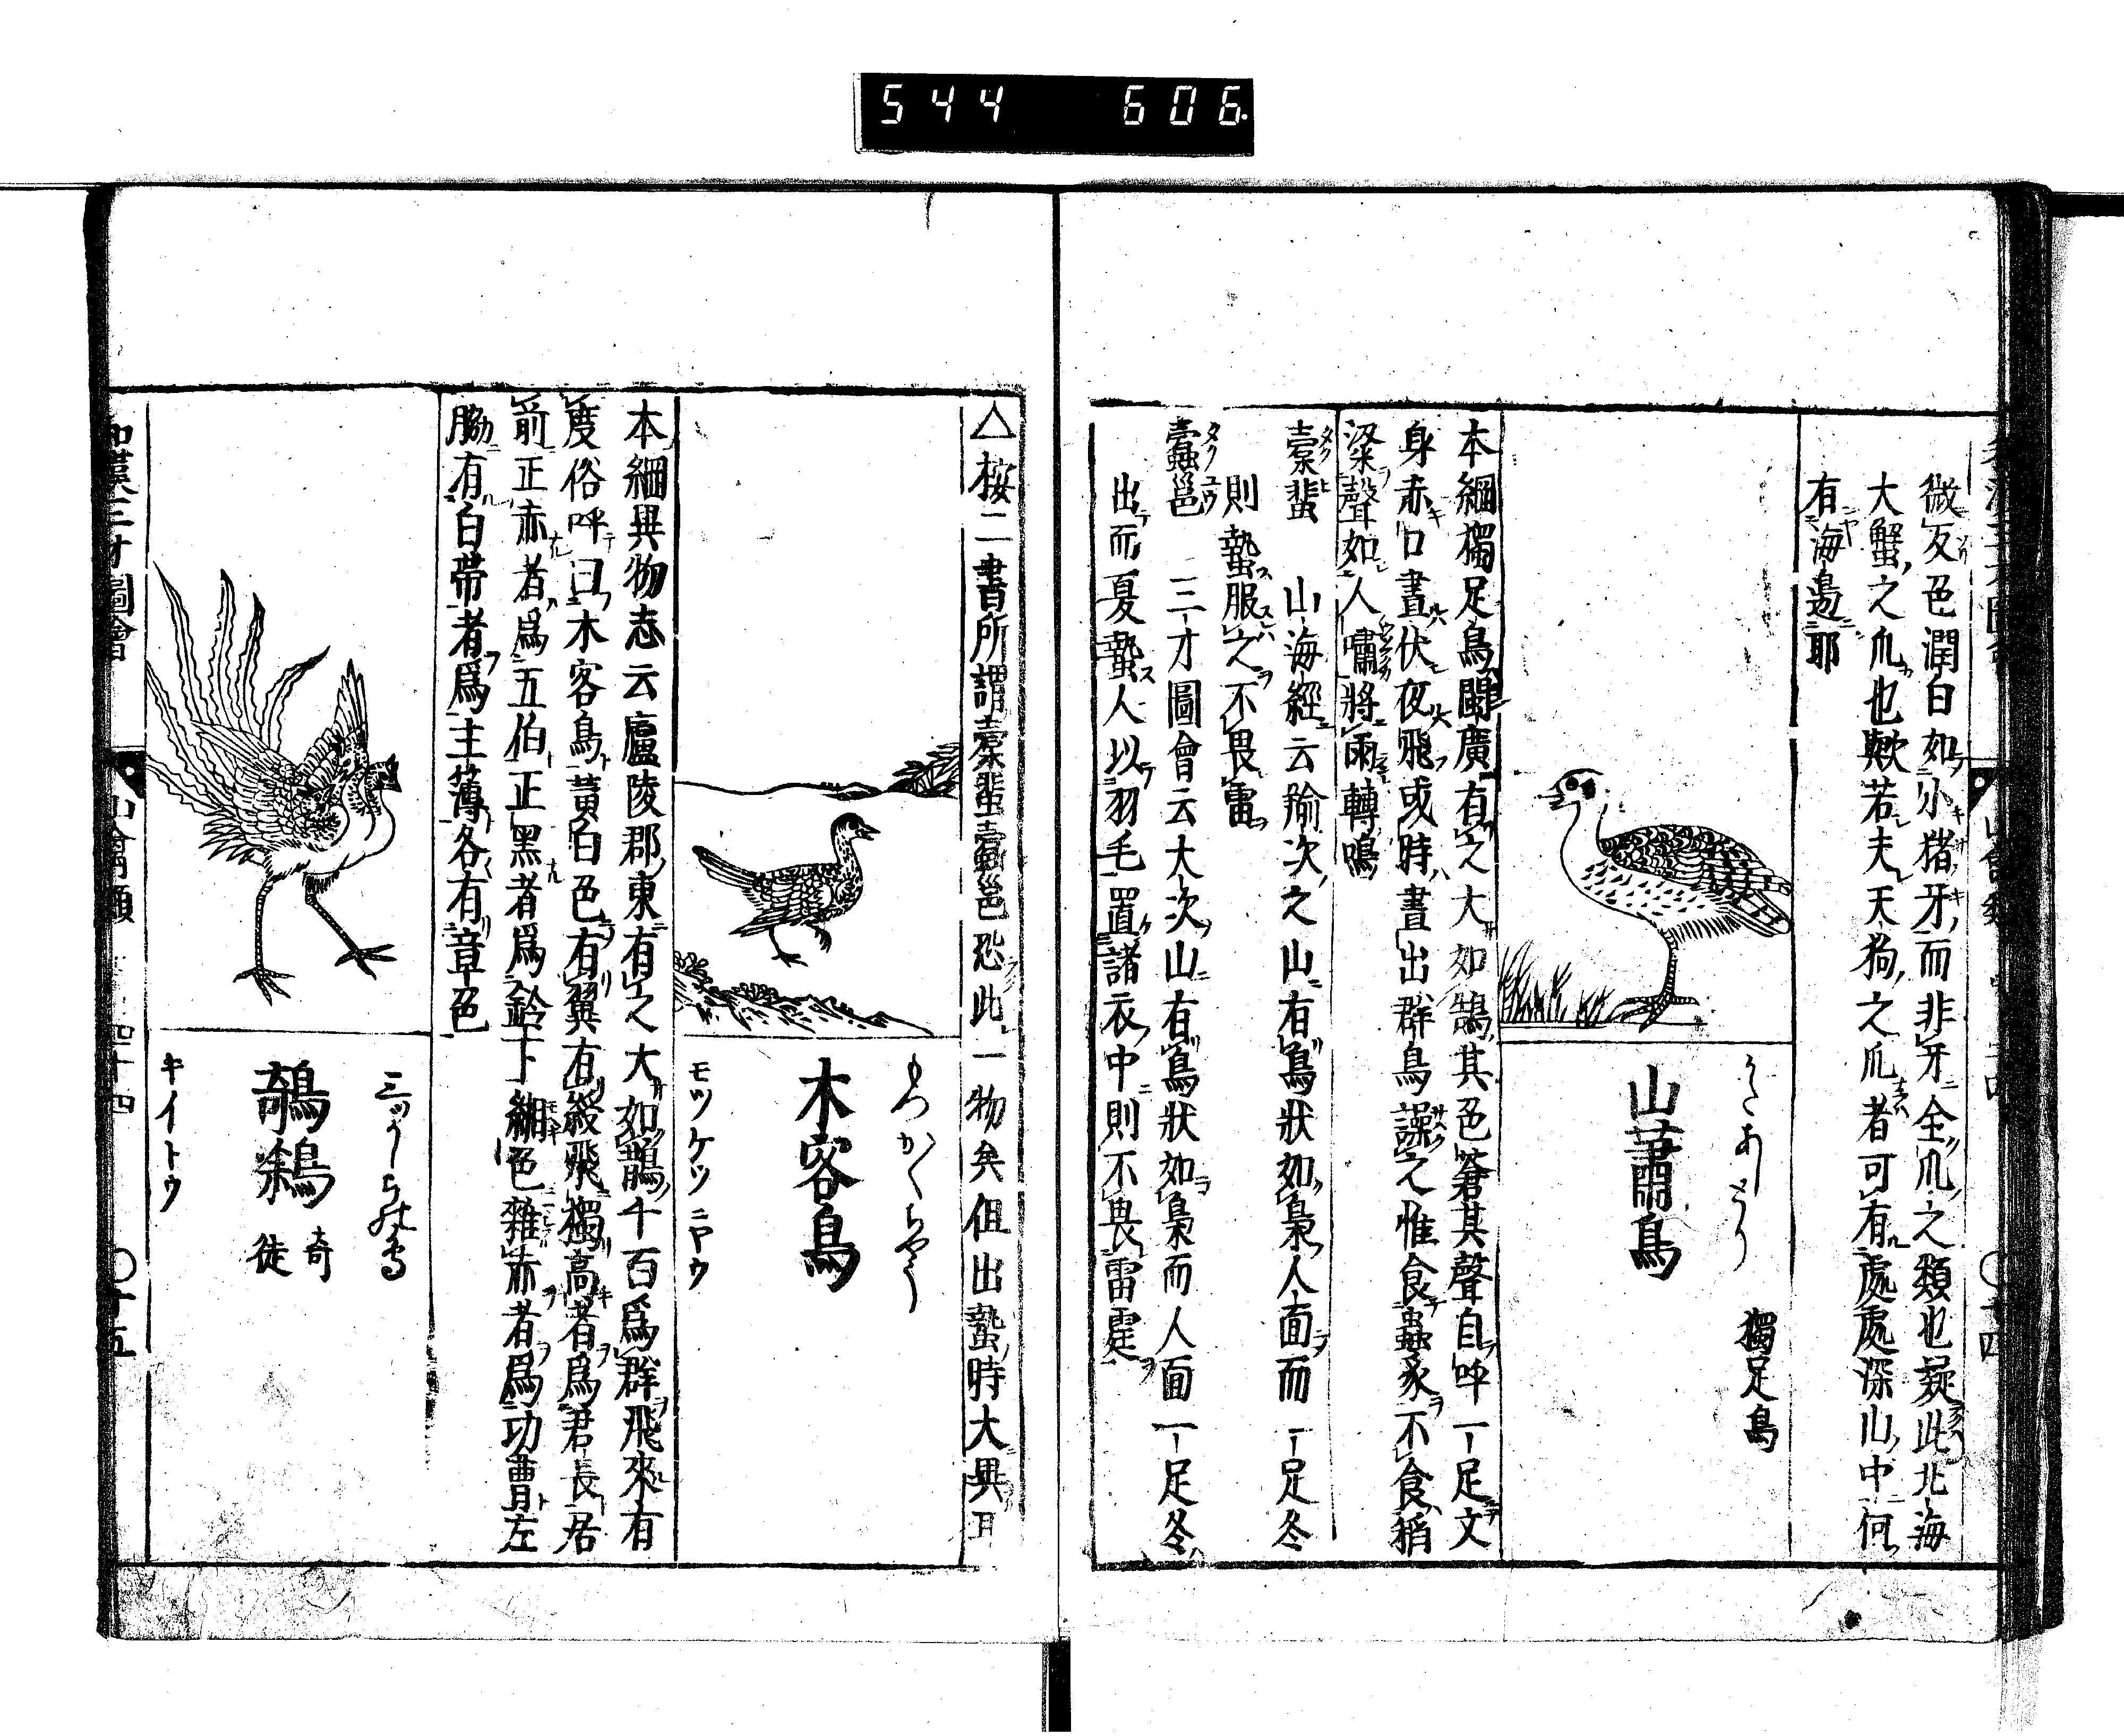 544 606
微反色潤白如小猪牙而非牙全爪之類也疑此北海
大蟹之爪也歟若夫天狗之爪者可有處處深山中何
有海邊耶
山蕭鳥
獨足鳥
本綱獨足鳥閩廣有之大如鵠其色蒼其聲自呼一足文
身赤口晝伏夜飛或時晝出群鳥譟之惟食蟲豕不食稻
粱聲如人嘯將雨轉鳴
橐𩇯 山海經云羭次之山有鳥狀如梟人面而一足冬
則蟄服之不畏雷
蠹邕 三才圖會云大次山有鳥狀如梟而人面一足冬
出而夏蟄人以羽毛置諸衣中則不畏雷霆
△按二書所謂橐𩇯蠹邕恐此一物矣但出蟄時大異耳
もつかくちやう
木客鳥
モツケツニヤウ
本綱異物志云廬陵郡東有之大如鵲千百爲群飛來有
度俗呼曰木客鳥黃白色有翼有綬飛獨高者爲君長居
前正赤者爲五伯正黑者爲鈴下緗色雜赤者爲功曹左
脇有白帶者爲主薄各有章色
鵸鵌
奇
徒
キイトウ
和漢三才圖會 山禽類 四十四 〇十五